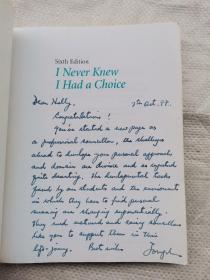 Sixth Edition
I Never Knew
I Had a Choice
Dear Hally,
7th Oct. 99.
Congratulations!
You've started a new page as
a professional counsellor, the challenges
ahead to develop your personal approach
and domain are diverse and as expected
quite daunting. The developmental tasks
faced by our students and the environment
in which they have to find personal
meaning are changing exponentially.
They need matured and caring counsellors
like you to support them in this
life-journey. Best wishes